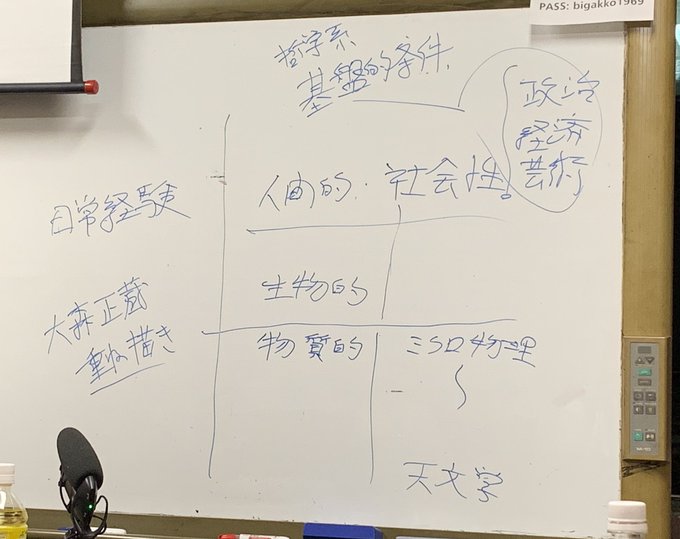 PASS: bigakko1969
哲学系
基盤的条件
政治
経済
芸術
人間的・社会性。
日常経験
生物的
大森正蔵
重ね描き
物質的 ミクロ物理
〜
天文学